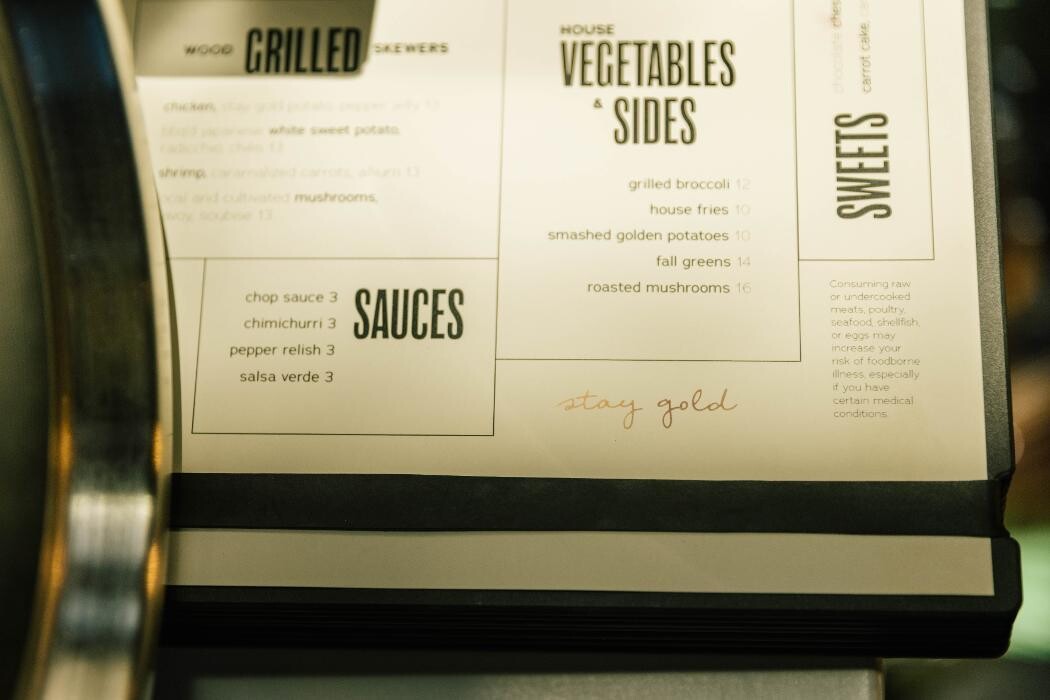 WOOD GRILLED SKEWERS
chicken, stay gold potato, pepper jelly 13
japanese white sweet potato,
radicchio, chilis 13
shrimp, caramalized carrots, allium 13
local and cultivated mushrooms,
savoy, soubise 13
chop sauce 3
chimichurri 3
pepper relish 3
salsa verde 3
SAUCES
HOUSE
VEGETABLES
&
SIDES
grilled broccoli 12
house fries 10
smashed golden potatoes 10
fall greens 14
roasted mushrooms 16
stay gold
SWEETS
chocolate
carrot cake,
Consuming raw
or undercooked
meats, poultry,
seafood, shellfish,
or eggs may
increase your
risk of foodborne
illness, especially
if you have
certain medical
conditions.